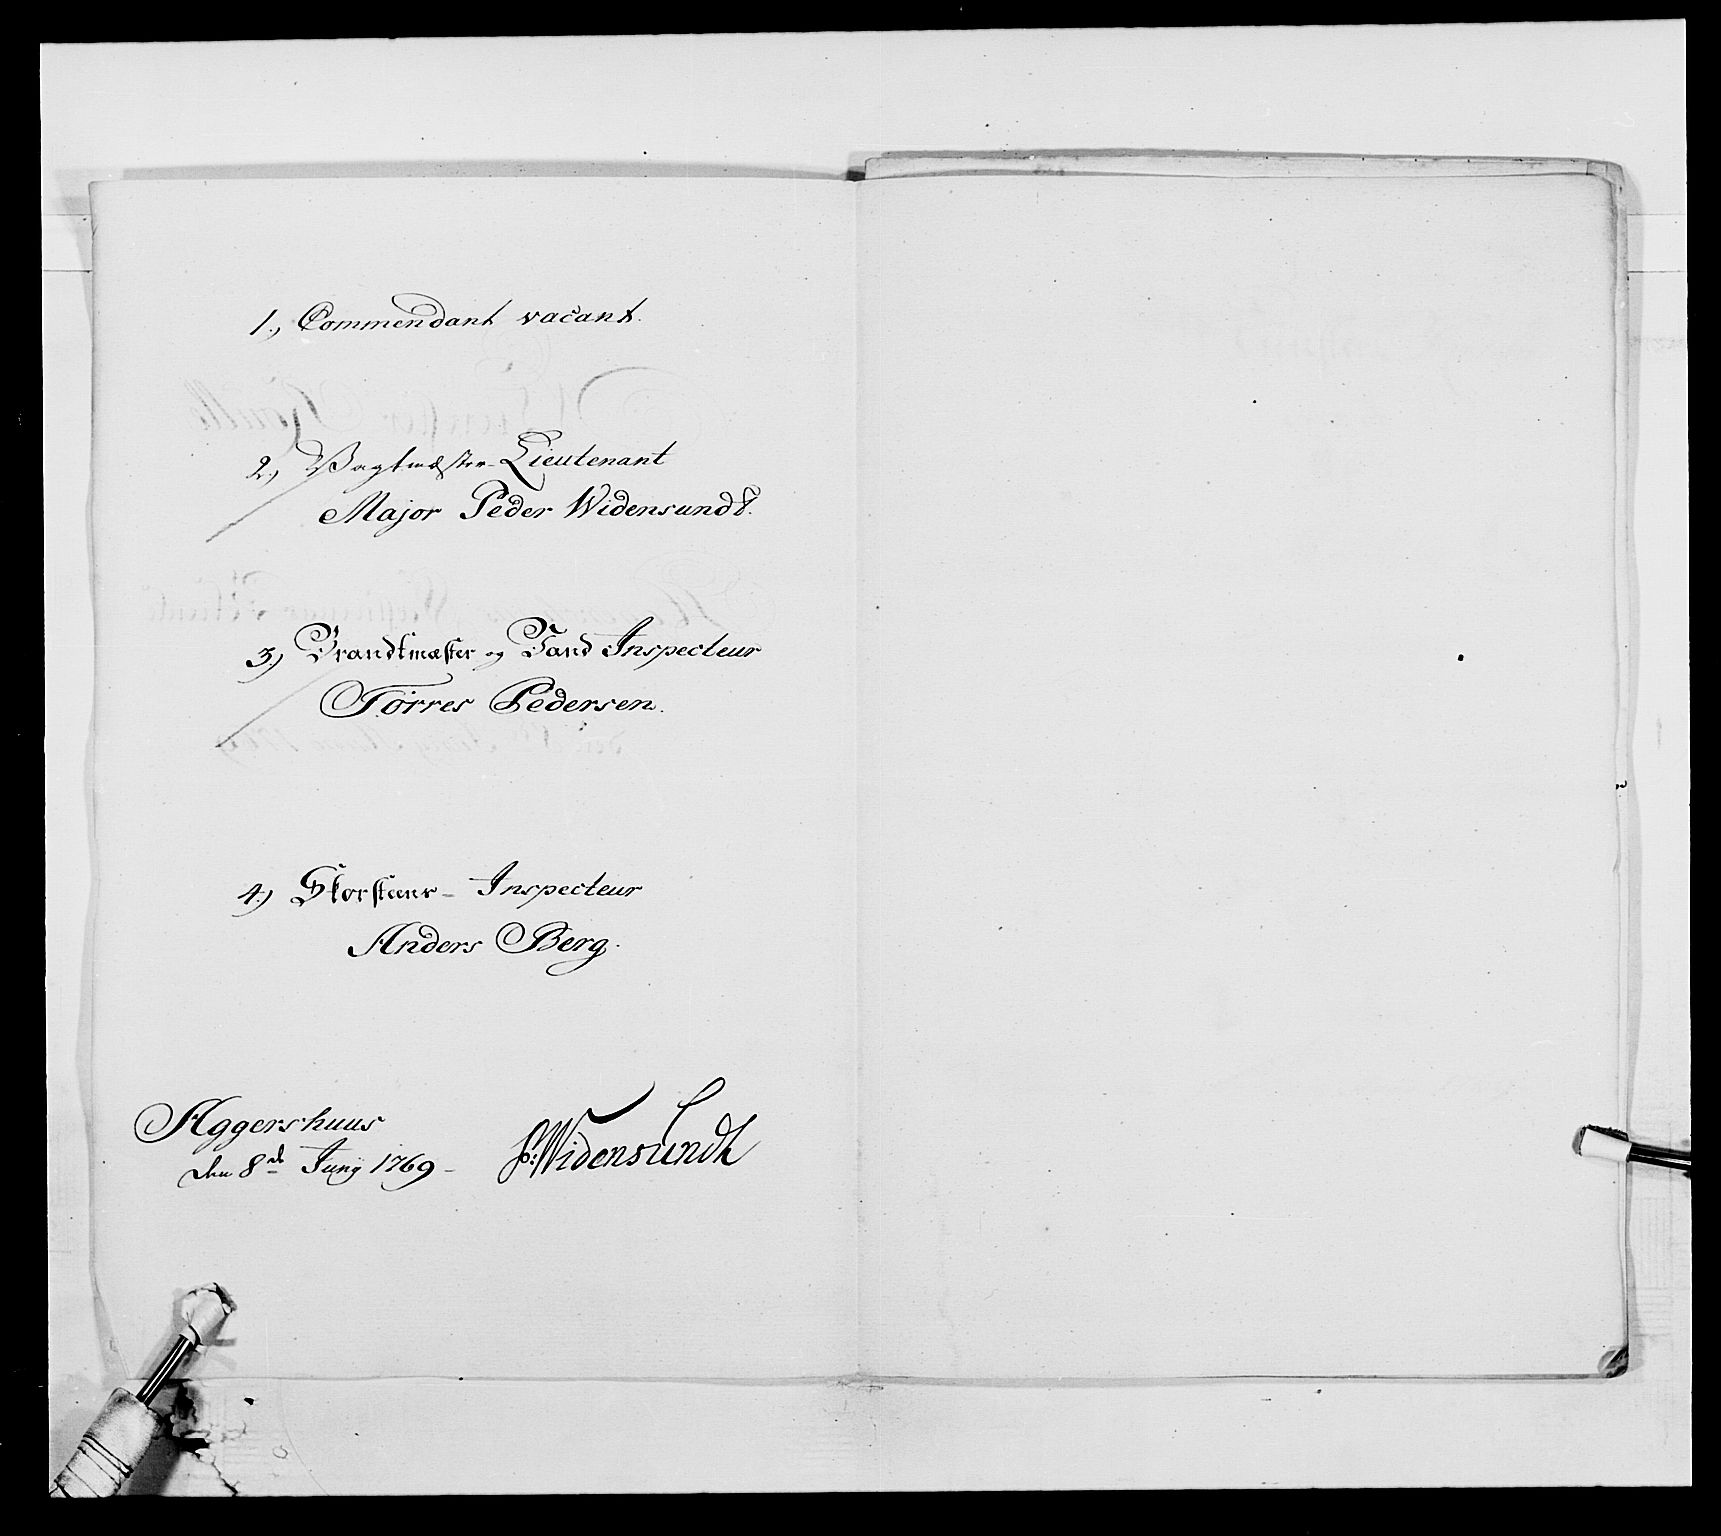 1.) Commendant vacant.
2.) Vagtmæster-Lieutenant
Major Peder Widensundt.
3.) Brandtmæster og Vand Inspecteur
Torres Pedersen.
4.) Skorsteens- Inspecteur
Anders Berg.
Aggershuus
den 8de Junij 1769 -
P: Widensundt